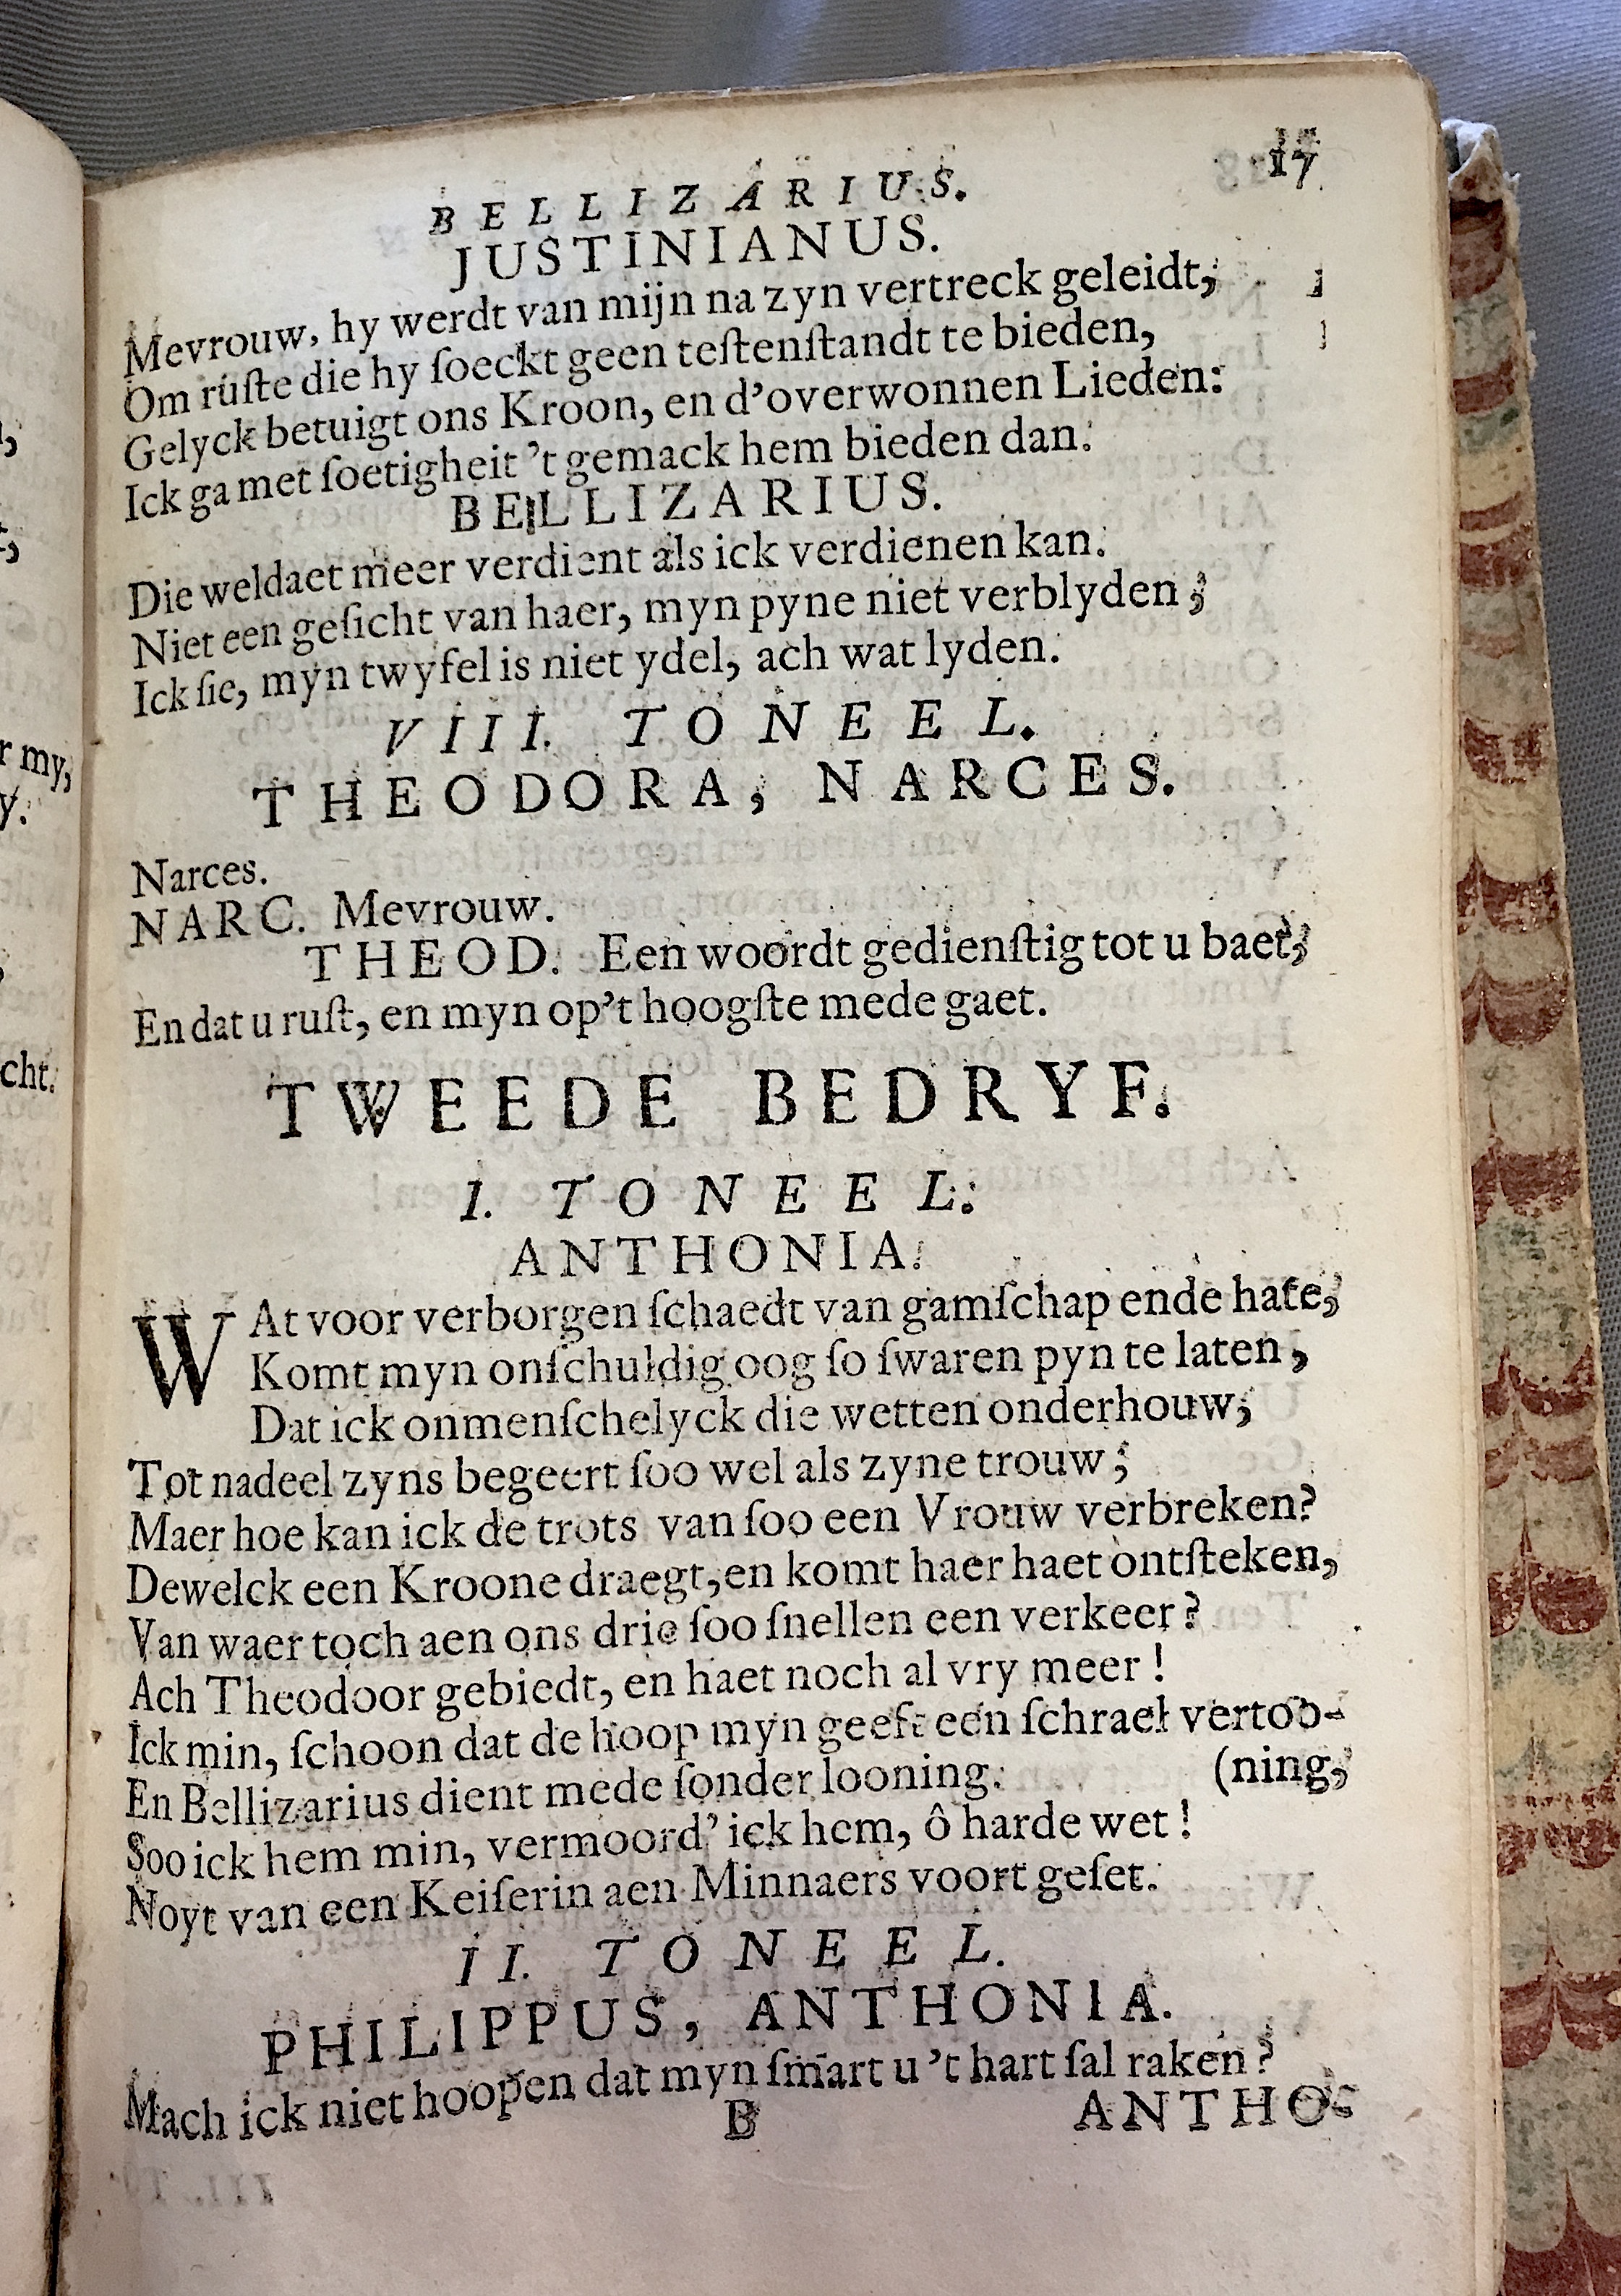 BELLIZARIUS. 17
JUSTINIANUS.
Mevrouw, hy werdt van mijn na zyn vertreck geleidt,
Om ruſte die hy ſoeckt geen teſtenſtandt te bieden,
Gelyck betuigt ons Kroon, en d'overwonnen Lieden:
Ick ga met ſoetigheit 't gemack hem bieden dan.
BELLIZARIUS.
Die weldaet meer verdient als ick verdienen kan.
Niet een geſicht van haer, myn pyne niet verblyden;
Ick ſie, myn twyfel is niet ydel, ach wat lyden.
VIII. TONEEL.
THEODORA, NARCES.
Narces.
NARC. Mevrouw.
THEOD. Een woordt gedienſtig tot u baet,
En dat u ruſt, en myn op't hoogſte mede gaet.
TWEEDE BEDRYF.
I. TONEEL.
ANTHONIA.
WAt voor verborgen ſchaedt van gamſchap ende hate,
Komt myn onſchuldig oog ſo ſwaren pyn te laten,
Dat ick onmenſchelyck die wetten onderhouw;
Tot nadeel zyns begeert ſoo wel als zyne trouw;
Maer hoe kan ick de trots van ſoo een Vrouw verbreken?
Dewelck een Kroone draegt, en komt haer haet ontſteken,
Van waer toch aen ons drie ſoo ſnellen een verkeer?
Ach Theodoor gebiedt, en haet noch al vry meer!
Ick min, ſchoon dat de hoop myn geeft een ſchrael vertoo-
En Bellizarius dient mede ſonder looning. (ning,
Soo ick hem min, vermoord' ick hem, ô harde wet!
Noyt van een Keiſerin aen Minnaers voort geſet.
II. TONEEL.
PHILIPPUS, ANTHONIA.
Mach ick niet hoopen dat myn ſmart u 't hart ſal raken?
B ANTHO-
r my,
y.
cht.